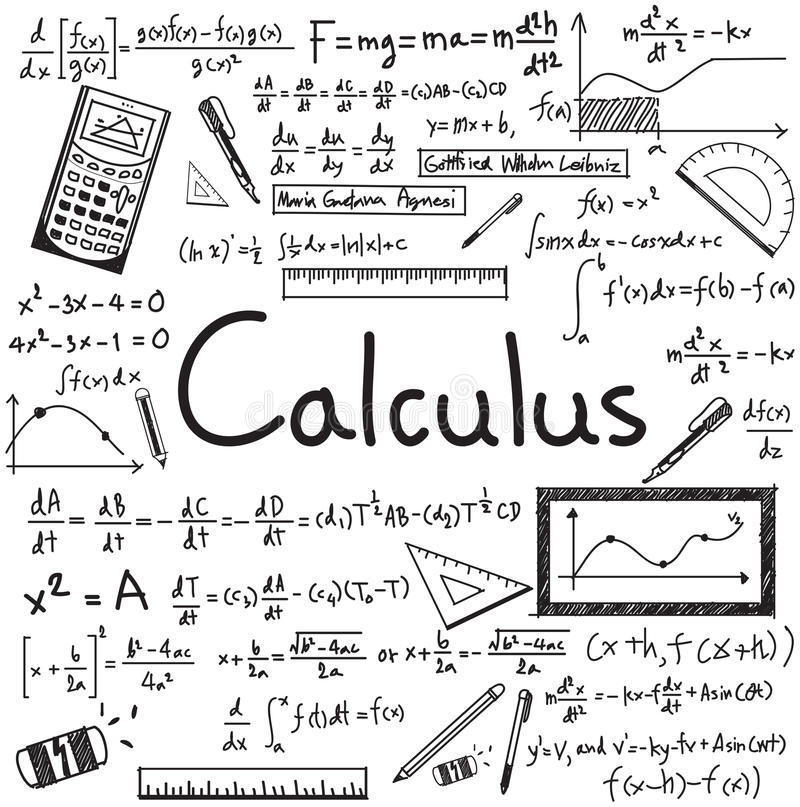 d/dx [f(x)/g(x)] = g(x)f(x) – f(x)g(x) / g(x)²
F = mg = ma = m d²h/dt2
m d²x/dt² = -kx
dA/dt = dB/dt = dC/dt = dD/dt = (c₁)AB-(c₂)CD
f(a)
a
du/dx = du/dy = dy/dx
y = mx + b,
Gottfried Wilhelm Leibniz
Maria Gaetana Agnesi
f(x) = x²
(ln x)' = 1/2
∫ 1/x dx = |n|x| + c
∫sinx dx = - cosxdx + c
∫ₐᵇ f'(x)dx = f(b) - f(a)
x² - 3x - 4 = 0
4x² - 3x - 1 = 0
∫f(x) dx
Calculus
m d²x/dt² = -kx
df(x)/dz
dA/dt = dB/dt = - dC/dt = - dD/dt = (d₁)T^½ AB - (d₂)T^½ CD
V₂
x² = A
dT/dt = (c₃) dA/dt - (c₄)(T₀-T)
[x + b/2a]² = b² - 4ac / 4a²
x + b/2a = √(b² - 4ac) / 2a or x + b/2a = - √(b² - 4ac) / 2a
(x + h, f(x + h))
d/dx ∫ₐˣ f(t)dt = f(x)
m d²x/dt² = -kx-f dx/dt + Asin(θt)
y' = V, and v' = -ky-fv + Asin(wt)
f(x-h) - f(x))